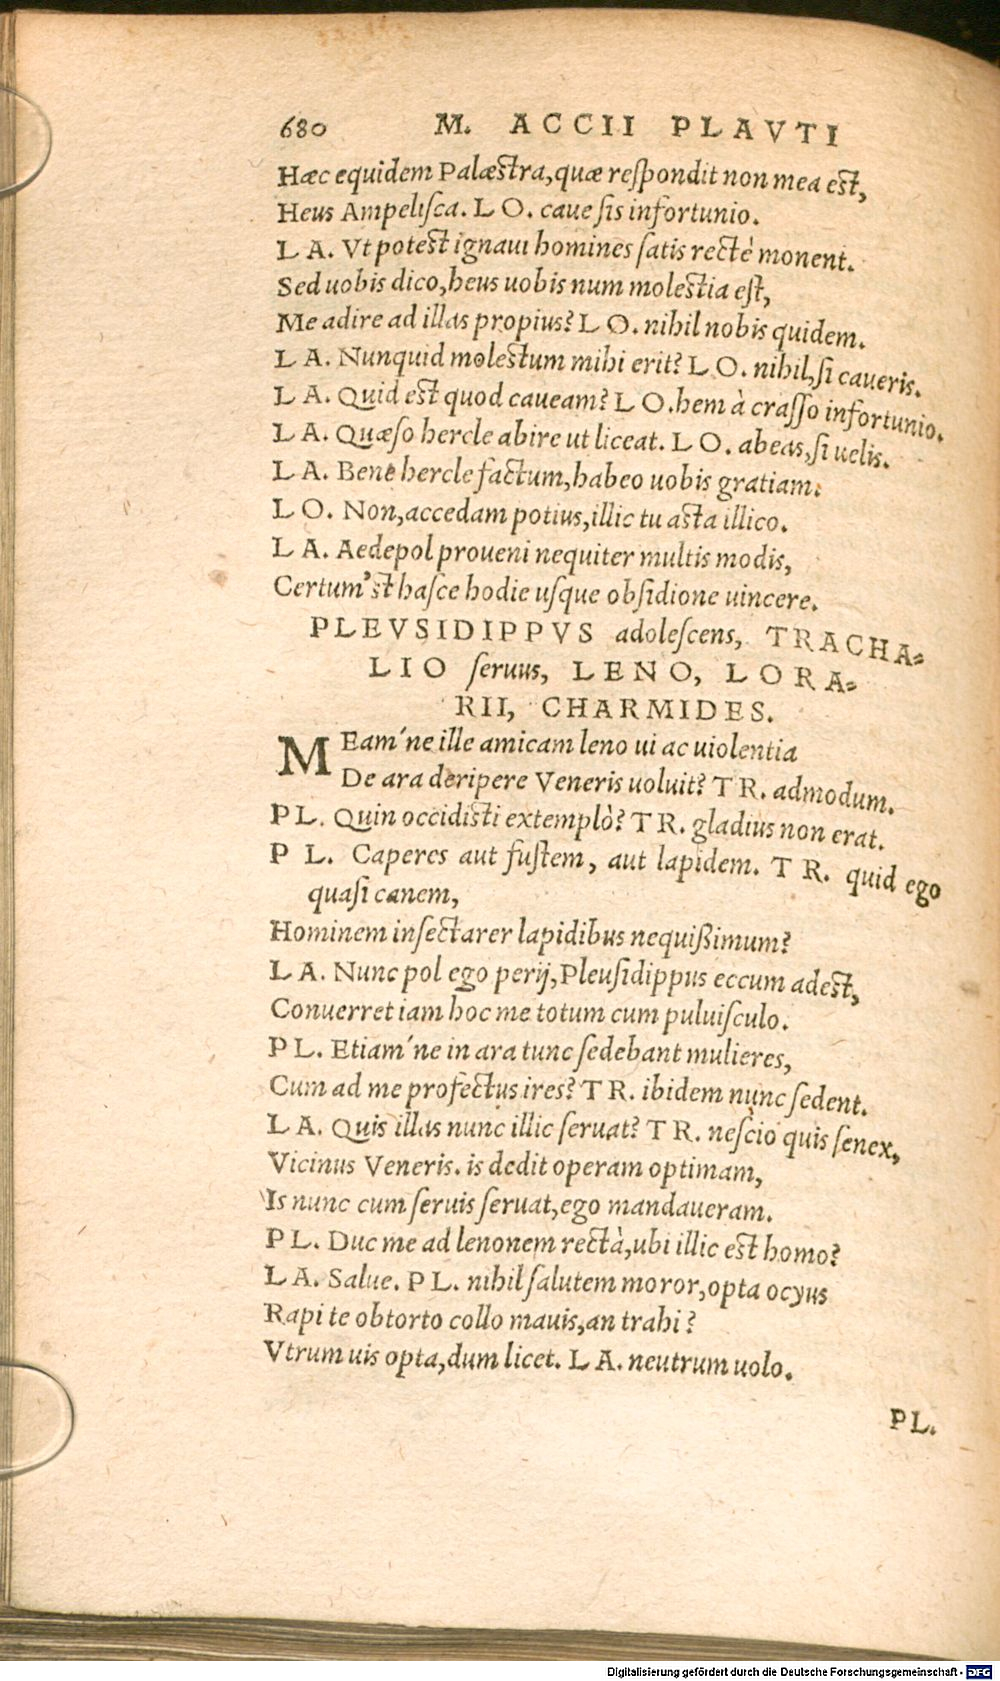 680 M. ACCII PLAVTI
Hæc equidem Palæstra,quæ respondit non mea est,
Heus Ampelisca. L O. caue sis infortunio.
L A. Vt potest ignaui homines satis rectè monent.
Sed uobis dico,heus uobis num molestia est,
Me adire ad illas propius? L O. nihil nobis quidem.
L A. Nunquid molestum mihi erit? L O. nihil,si caueris.
L A. Quid est quod caueam? L O.hem à crasso infortunio.
L A. Quæso hercle abire ut liceat. L O. abeas,si uelis.
L A. Bene hercle factum,habeo uobis gratiam.
L O. Non,accedam potius,illic tu asta illico.
L A. Aedepol proueni nequiter multis modis,
Certum'st hasce hodie usque obsidione uincere.
PLEVSIDIPPVS adolescens, TRACHA=
LIO seruus, LENO, LORA=
RII, CHARMIDES.
MEam'ne ille amicam leno ui ac uiolentia
De ara deripere Veneris uoluit? T R. admodum.
P L. Quin occidisti extemplò? T R. gladius non erat.
P L. Caperes aut fustem, aut lapidem. T R. quid ego
quasi canem,
Hominem insectarer lapidibus nequißimum?
L A. Nunc pol ego perij,Pleusidippus eccum adest,
Conuerret iam hoc me totum cum puluisculo.
P L. Etiam'ne in ara tunc sedebant mulieres,
Cum ad me profectus ires? T R. ibidem nunc sedent.
L A. Quis illas nunc illic seruat? T R. nescio quis senex,
Vicinus Veneris. is dedit operam optimam,
Is nunc cum seruis seruat,ego mandaueram.
P L. Duc me ad lenonem rectà,ubi illic est homo?
L A. Salue. P L. nihil salutem moror,opta ocyus
Rapi te obtorto collo mauis,an trahi?
Vtrum uis opta,dum licet. L A. neutrum uolo.
PL.
Digitalisierung gefördert durch die Deutsche Forschungsgemeinschaft - DFG